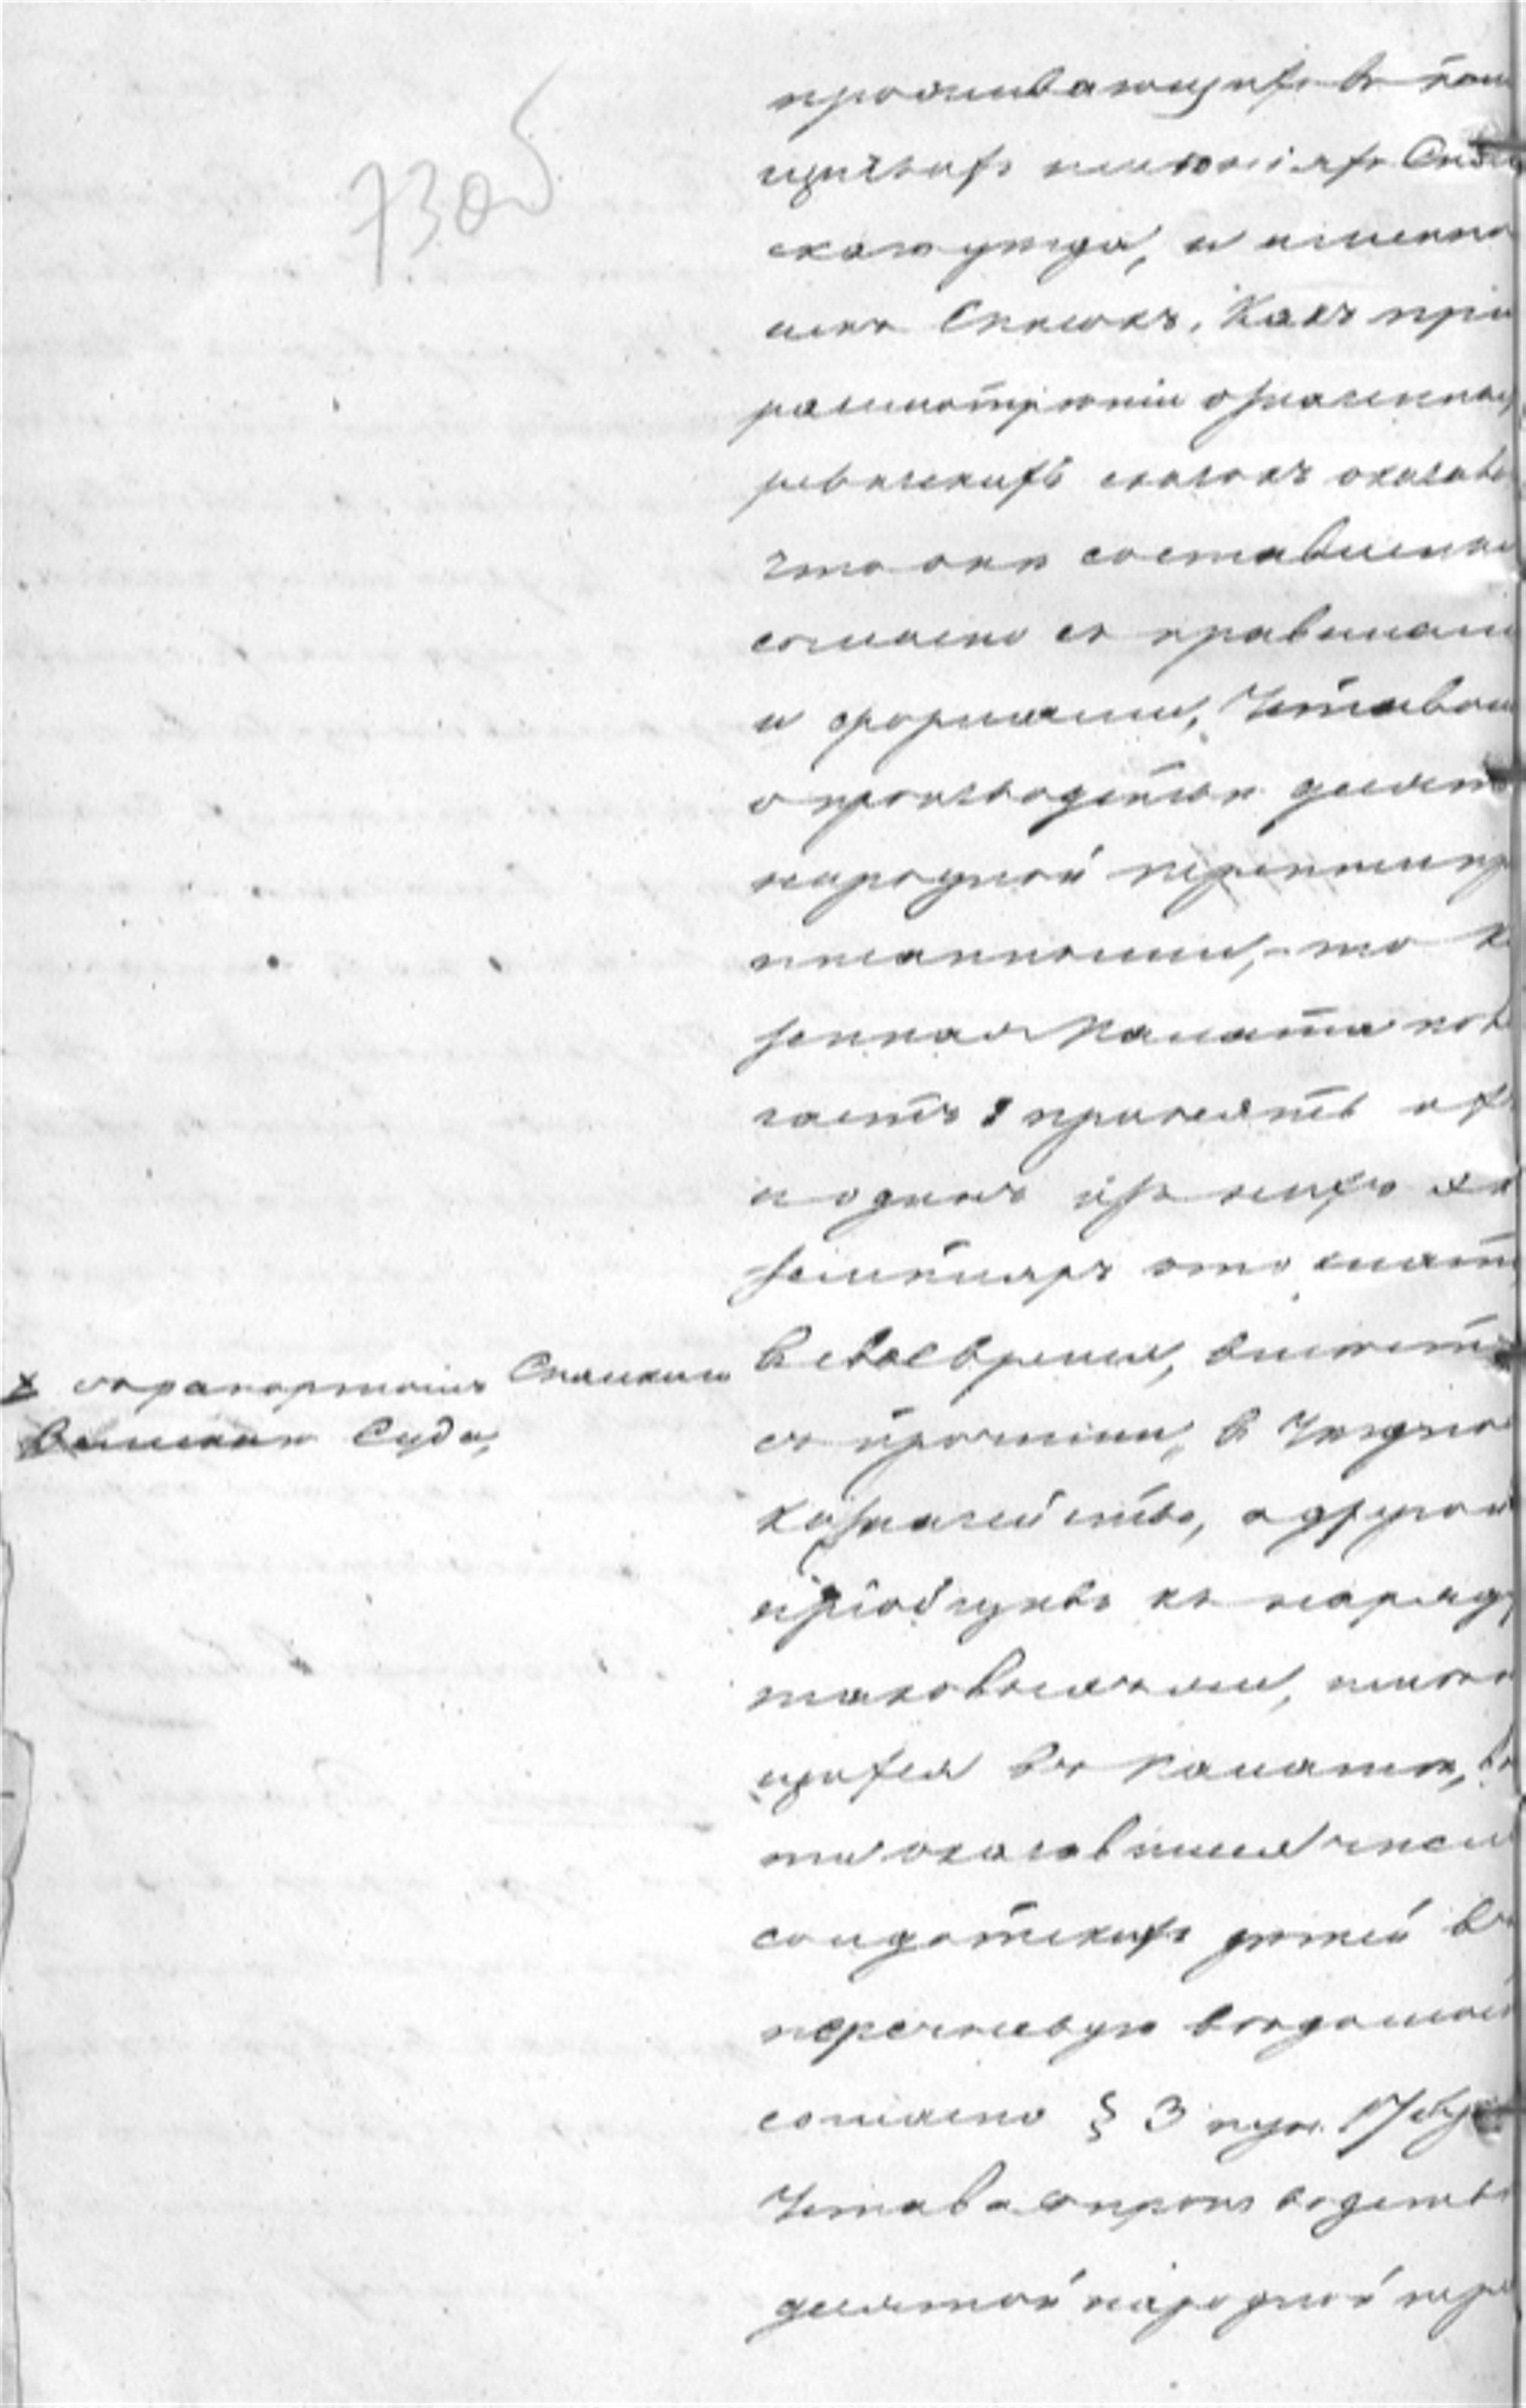 73об
проживающихъ въ пом
щичьихъ имѣніяхъ Спас
скаго уѣзда, и именно
списокъ. Какъ при
разсмотрѣніи означенных
ревизскихъ сказокъ оказало
что онѣ составлены
согласно съ правилами
и формами, Уставом
о производствѣ девят
народной переписи пр
писанными, то К
зенная Палата
гаетъ: принять
и одинъ изъ нихъ эк
земпляръ отослать
въ свое время, вмѣстѣ
съ прочими, въ Уѣздно
Казначейство, а другой
пріобщивъ къ наряду
таковыми, имѣю
щихся въ Палатѣ,
оказавшееся число
солдатскихъ дѣтей въ
перечневую вѣдомость
согласно § 3 пун. 17
Устава о производств
девятой народной пере
х съ рапортомъ Спасскаго
Земскаго Суда,